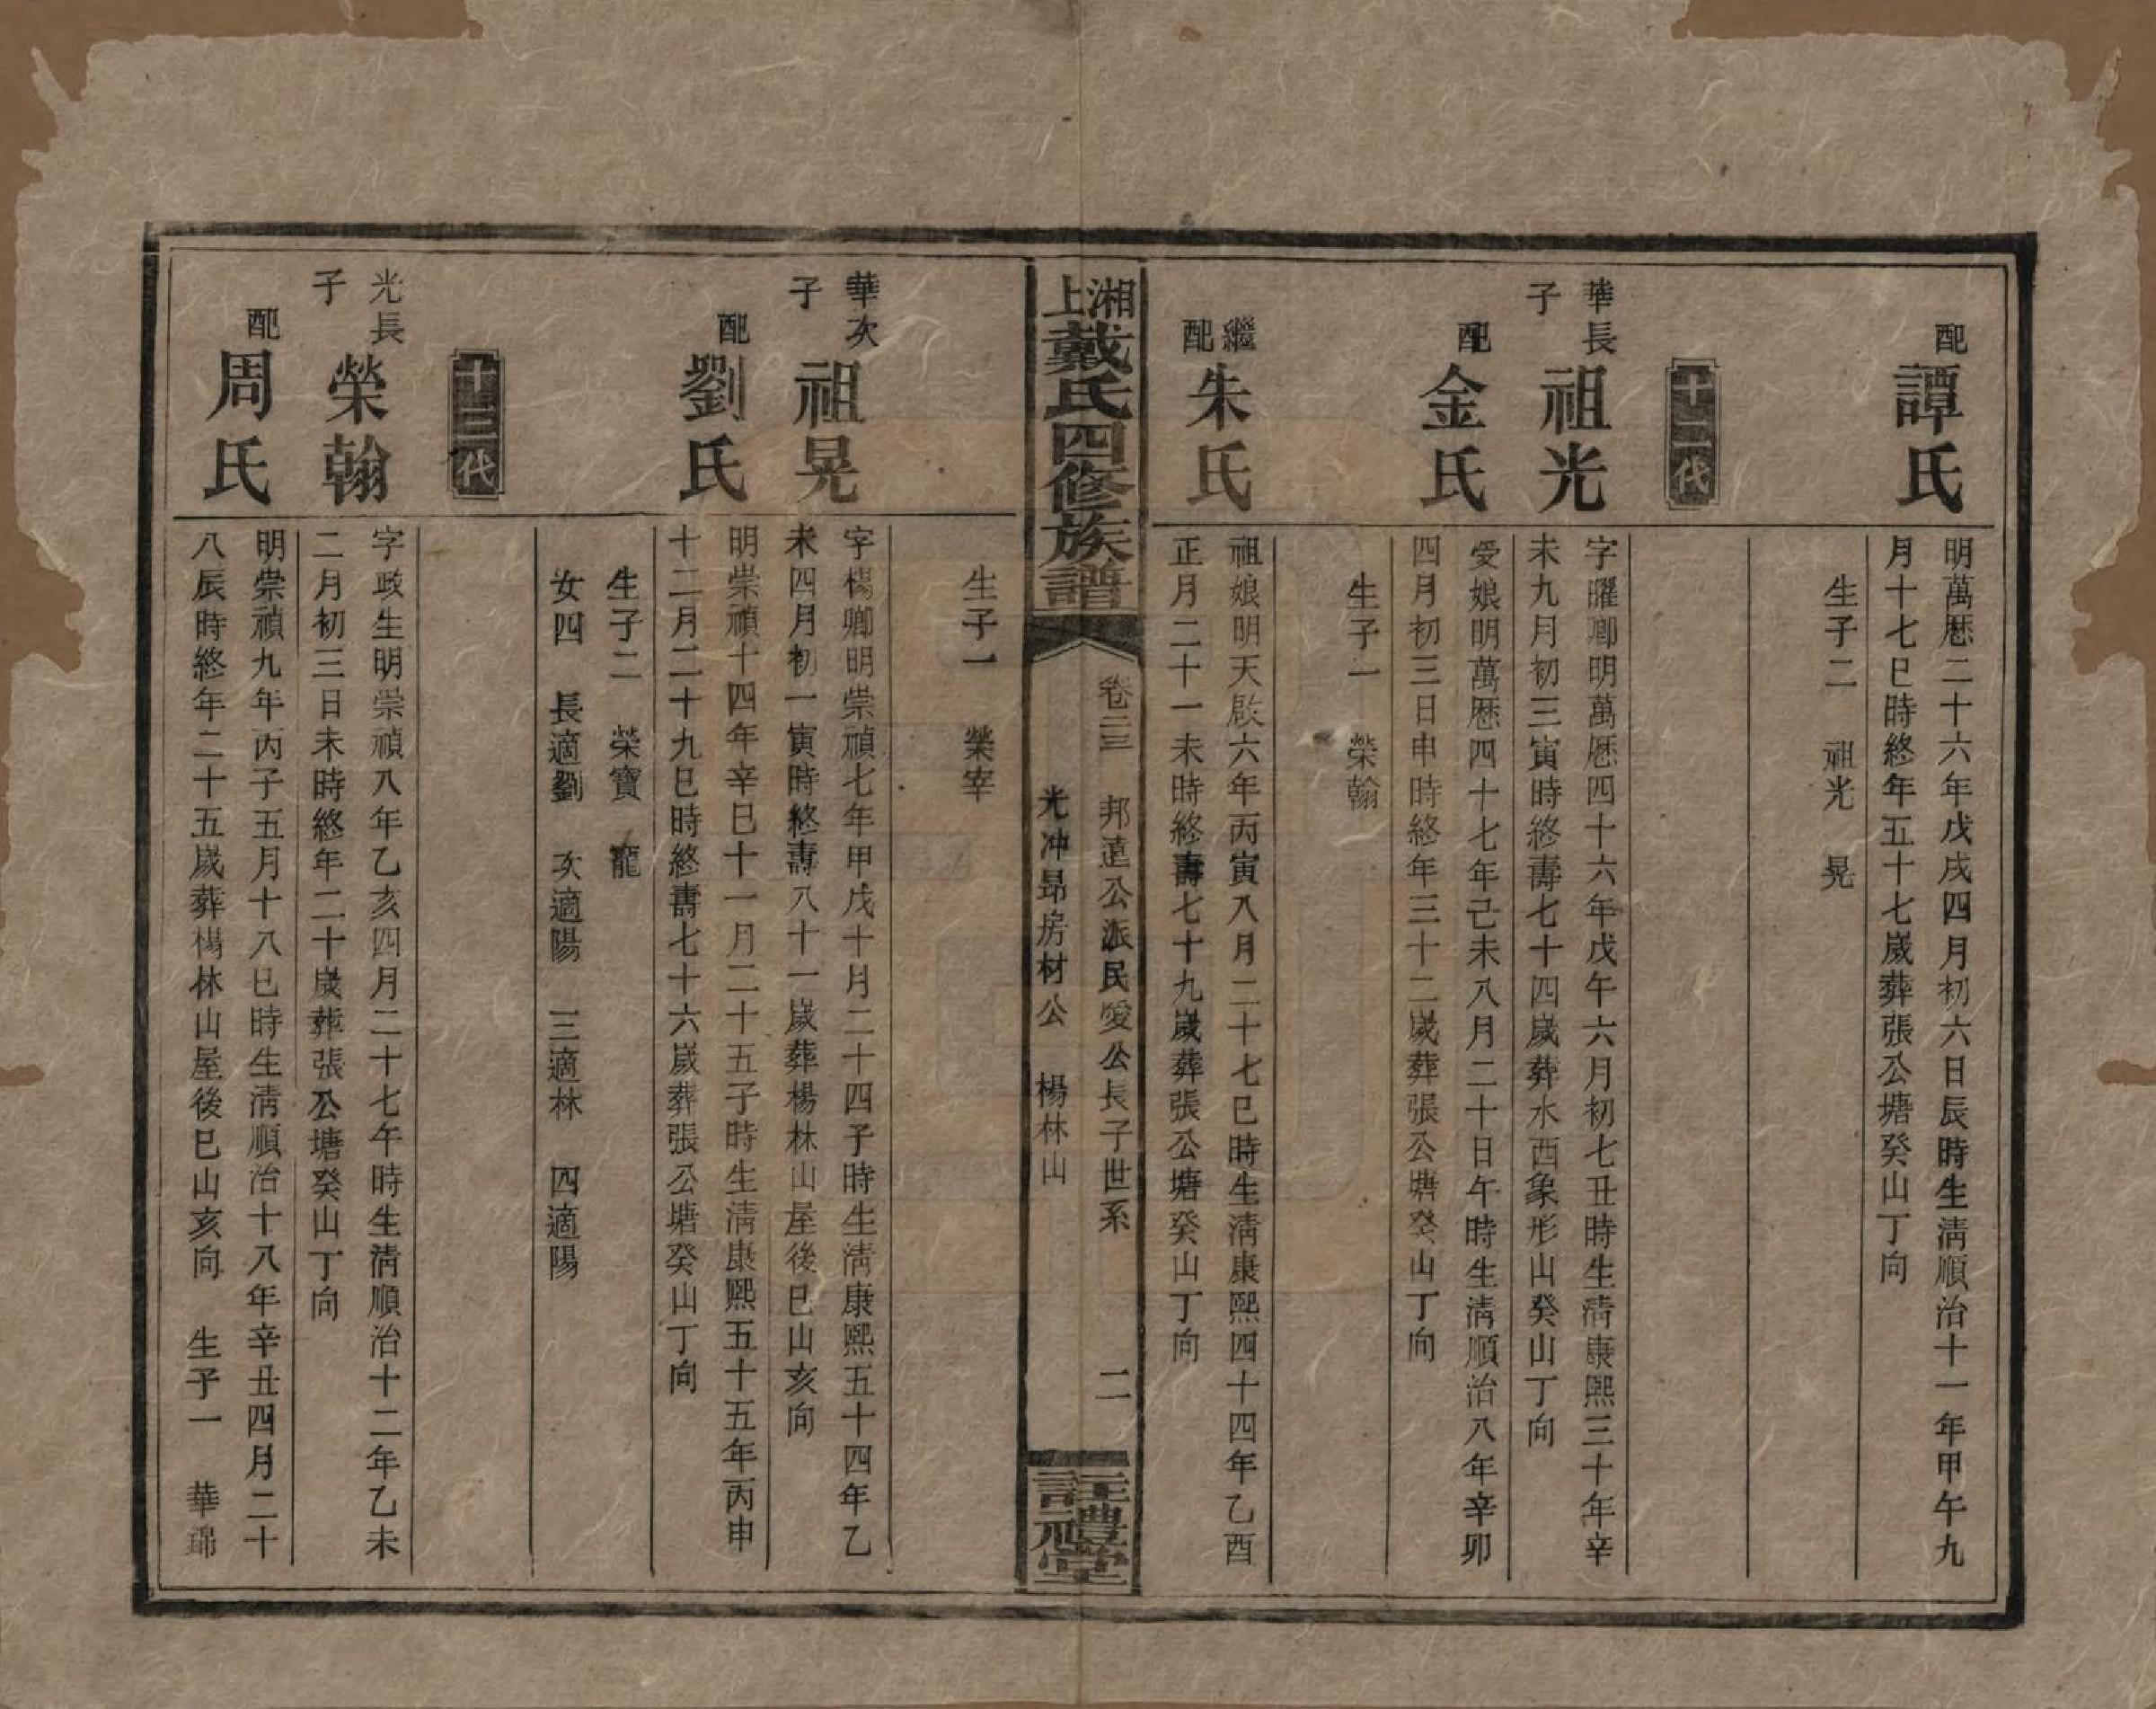 配
譚氏
明萬厯二十六年戊戌四月初六日辰時生淸順治十一年甲午九
月十七巳時終年五十七歲葬張公塘癸山丁向
生子二　祖光　晃
十二代
華長
子
祖光
字曜卿明萬厯四十六年戊午六月初七丑時生淸康熙三十年辛
未九月初三寅時終壽七十四歲葬水西象形山癸山丁向
配
金氏
受娘明萬厯四十七年己未八月二十日午時生淸順治八年辛卯
四月初三日申時終年三十二歲葬張公塘癸山丁向
生子一　榮翰
繼
配
朱氏
祖娘明天啟六年丙寅八月二十七巳時生淸康熙四十四年乙酉
正月二十一未時終壽七十九歲葬張公塘癸山丁向
湘上戴氏四修族譜
卷二三　邦道公派民愛公長子世系　二
光冲昻房材公　楊林山
註禮堂
生子一　榮宰
華次
子
祖晃
字楊卿明崇禎七年甲戌十月二十四子時生淸康熙五十四年乙
未四月初一寅時終壽八十一歲葬楊林山屋後巳山亥向
配
劉氏
明崇禎十四年辛巳十一月二十五子時生淸康熙五十五年丙申
十二月二十九巳時終壽七十六歲葬張公塘癸山丁向
生子二　榮寶　寵
女四　長適劉　次適陽　三適林　四適陽
十三代
光長
子
榮翰
字政生明崇禎八年乙亥四月二十七午時生淸順治十二年乙未
二月初三日未時終年二十歲葬張公塘癸山丁向
配
周氏
明崇禎九年丙子五月十八巳時生淸順治十八年辛丑四月二十
八辰時終年二十五歲葬楊林山屋後巳山亥向　生子一　華錦